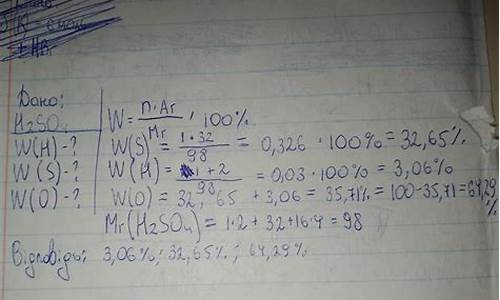 Дано:
H₂SO₄
W(H)-?
W(S)-?
W(O)-?
W = n·Ar / Mr · 100%
W(S) = 1·32 / 98 = 0,326 · 100% = 32,65%
W(H) = 1+2 / 98 = 0,03 · 100% = 3,06%
W(O) = 32,65 + 3,06 = 35,71% = 100-35,71 = 64,29%
Mr(H₂SO₄) = 1·2 + 32 + 16·4 = 98
Відповідь: 3,06%; 32,65%; 64,29%.